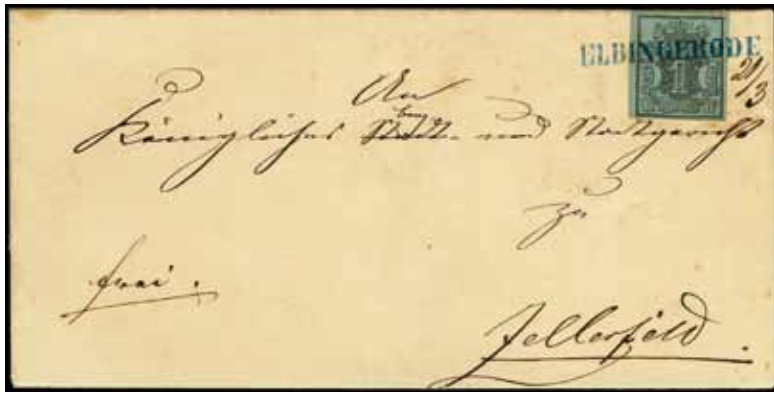 ELBINGERODE
1
20/3
An
Königliches Stadt- und Stadtgericht
Berg
zu
frei.
Zellerfeld.